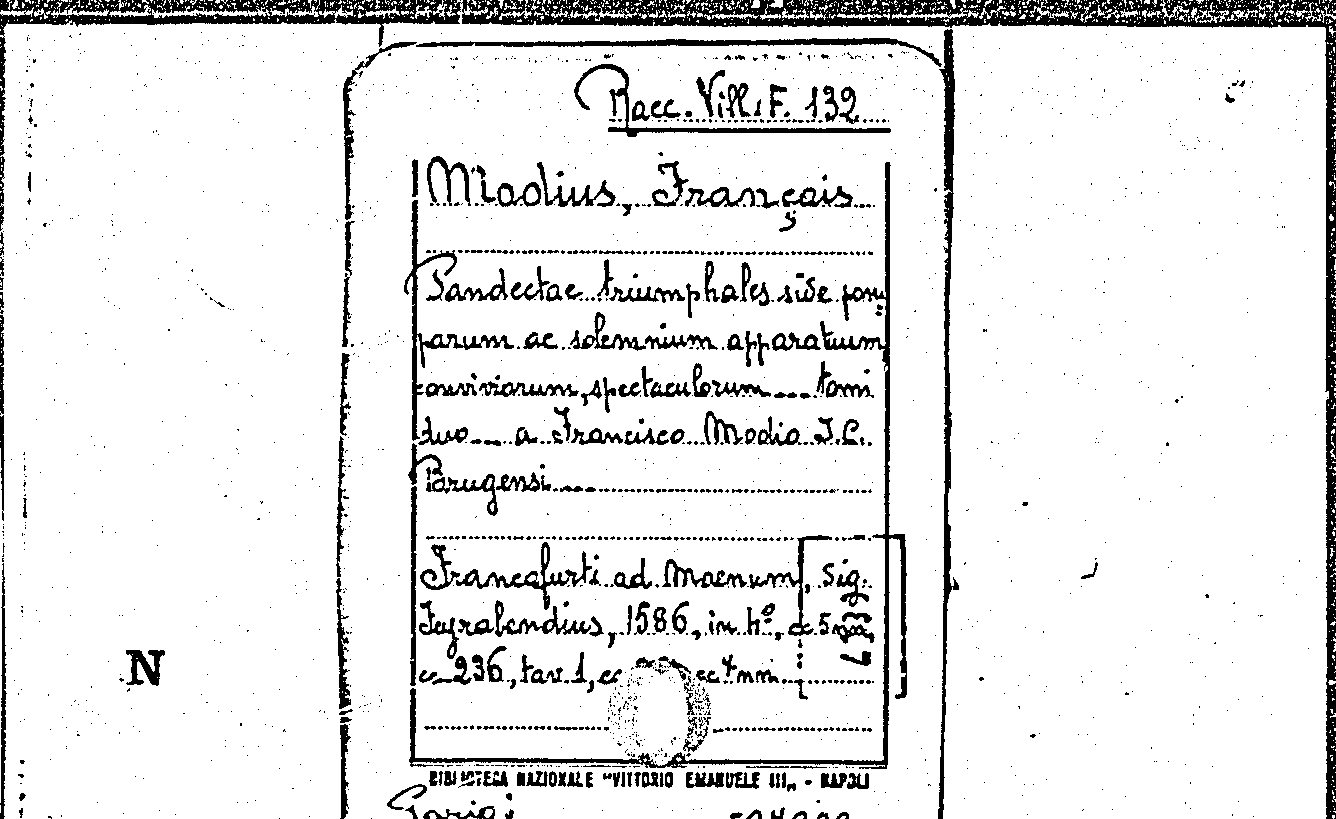 Racc. Vill. F. 132
Modius, Français
Pandectae triumphales sive pom
parum ac solemnium apparatuum
conviviorum, spectaculorum.... tomi
duo.... a Francisco Modio J.C.
Brugensi....
Francofurti ad Moenum, Sig.
Feyrabendius, 1586, in h.°, cc 5 nn,
cc 236, tav. 1, cc cc 4 nn.
N
BIBLIOTECA NAZIONALE "VITTORIO EMANUELE III„ - NAPOLI